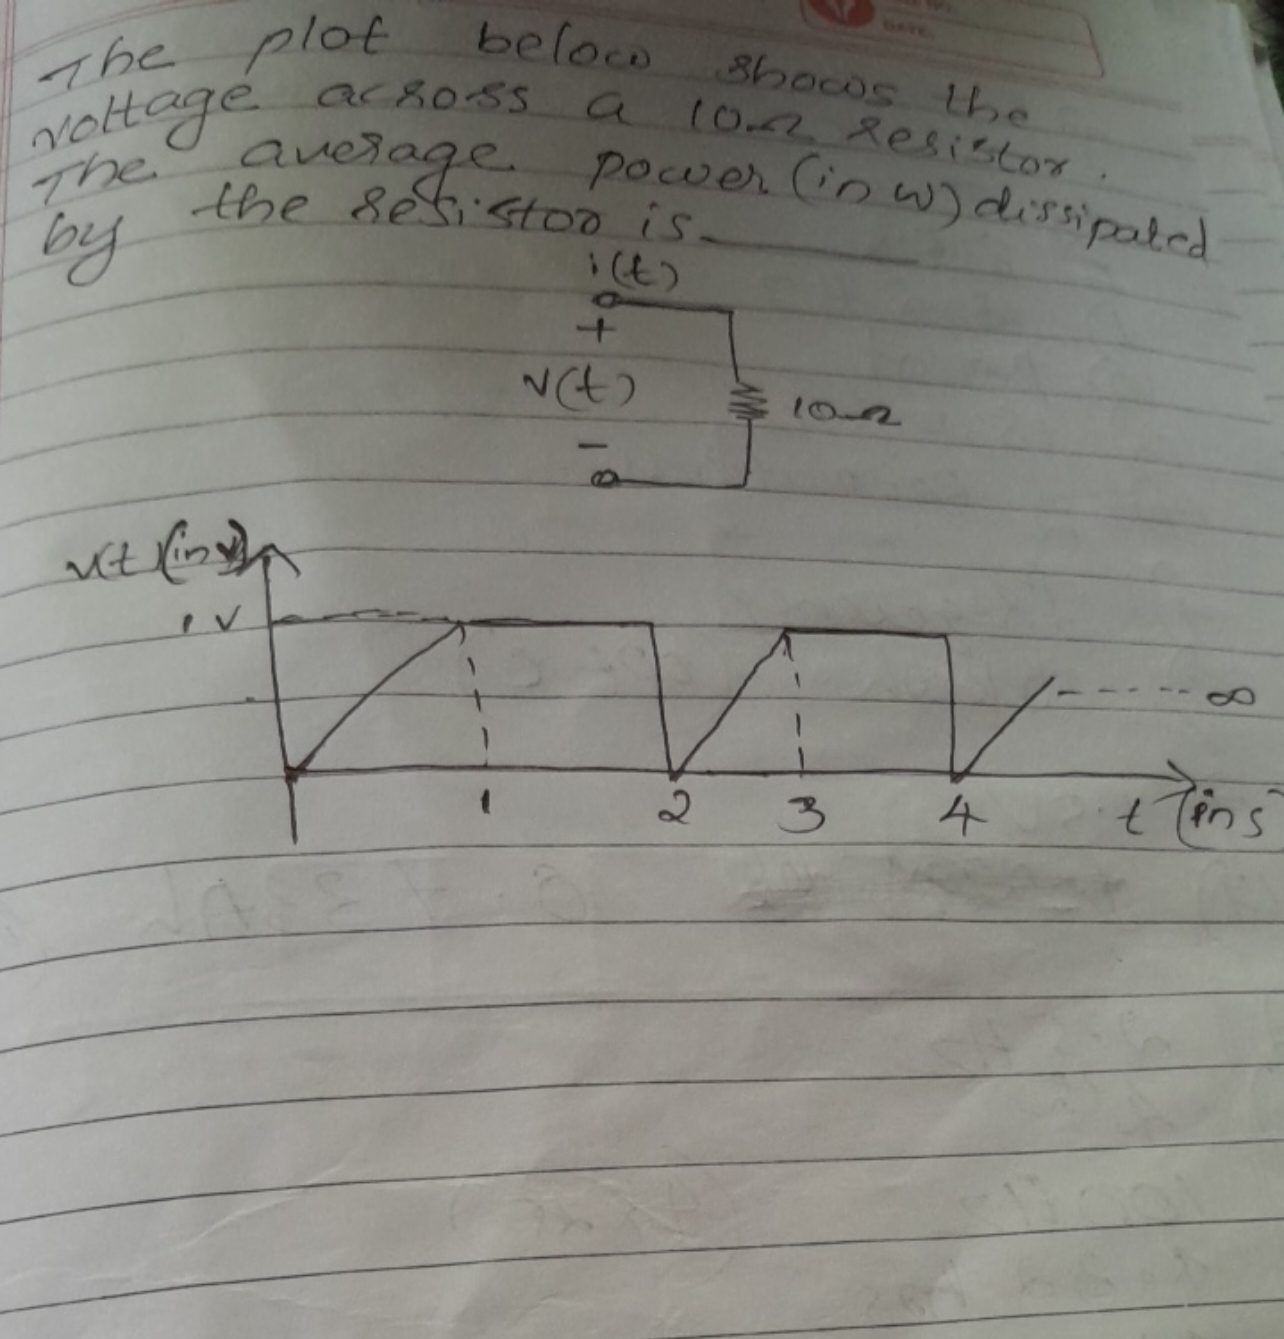 The plot below shows the
voltage across a 10Ω resistor.
The average power (in w) dissipated
by the resistor is
i(t)
+
v(t)
10Ω
-
v(t)(in v)
1 V
∞
1 2 3 4 t (in s